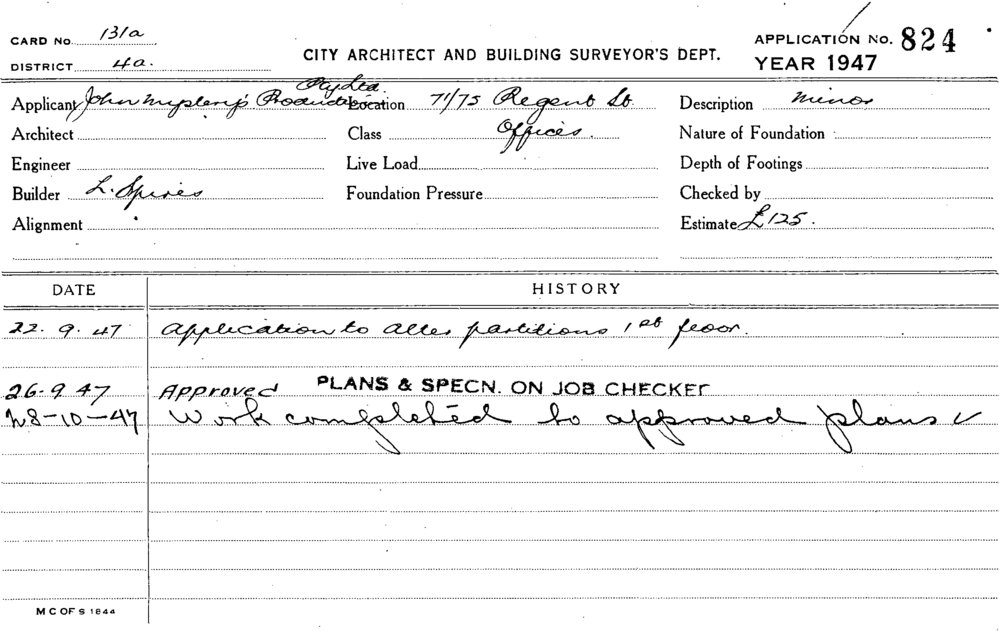 CARD No. 131a
DISTRICT 4a.
CITY ARCHITECT AND BUILDING SURVEYOR'S DEPT.
APPLICATION No. 824
YEAR 1947
Applicant John Products Pty Ltd. Location 71/75 Regent St. Description minor
Architect Class Offices. Nature of Foundation
Engineer Live Load Depth of Footings
Builder L. Spires Foundation Pressure Checked by
Alignment Estimate £125.
DATE HISTORY
22. 9. 47 Application to alter partitions 1st floor.
26. 9 47 Approved PLANS & SPECN. ON JOB CHECKED
28-10-47 Work completed to approved plans ✓
M C OF S 1844